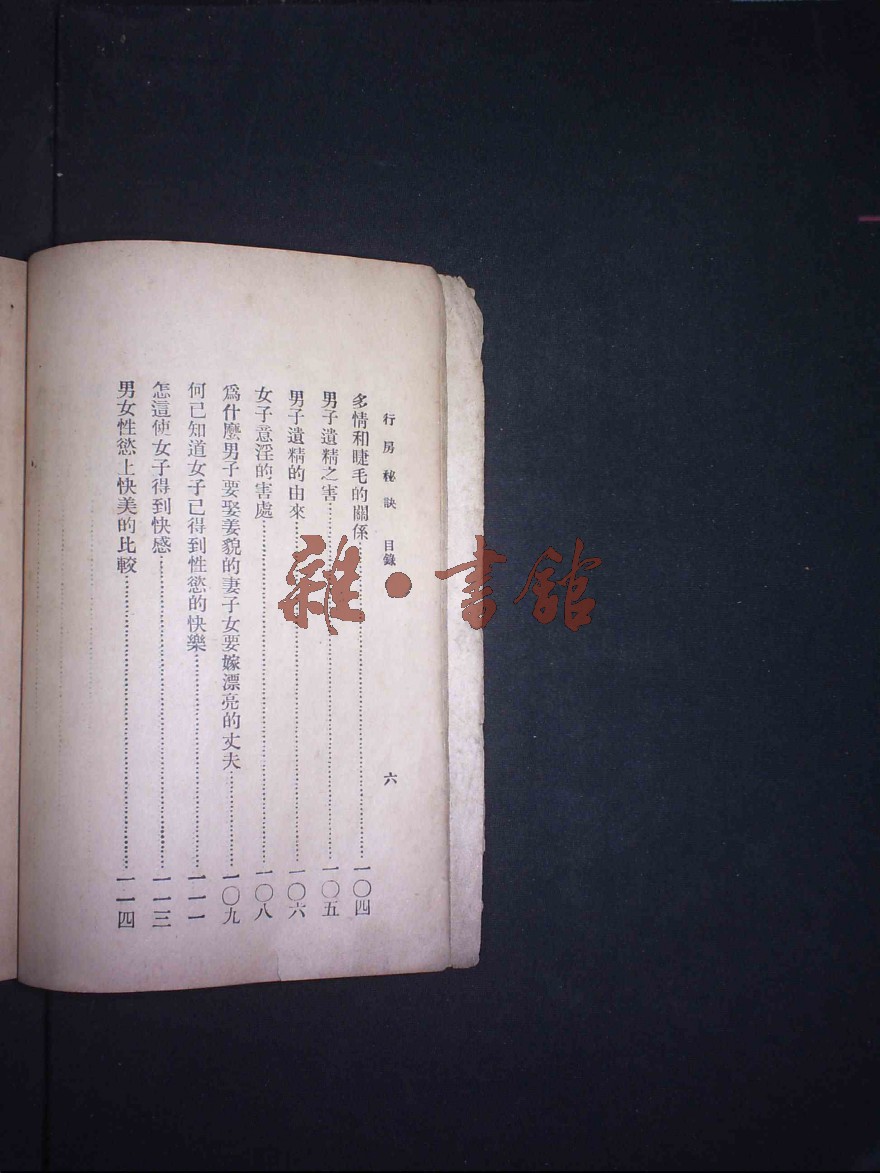 行房秘訣　目錄　六
多情和睫毛的關係……一〇四
男子遺精之害……一〇五
男子遺精的由來……一〇六
女子意淫的害處……一〇八
爲什麼男子要娶姜貌的妻子女要嫁漂亮的丈夫……一〇九
何已知道女子已得到性慾的快樂……一一一
怎這使女子得到快感……一一三
男女性慾上快美的比較……一一四
雜·書館